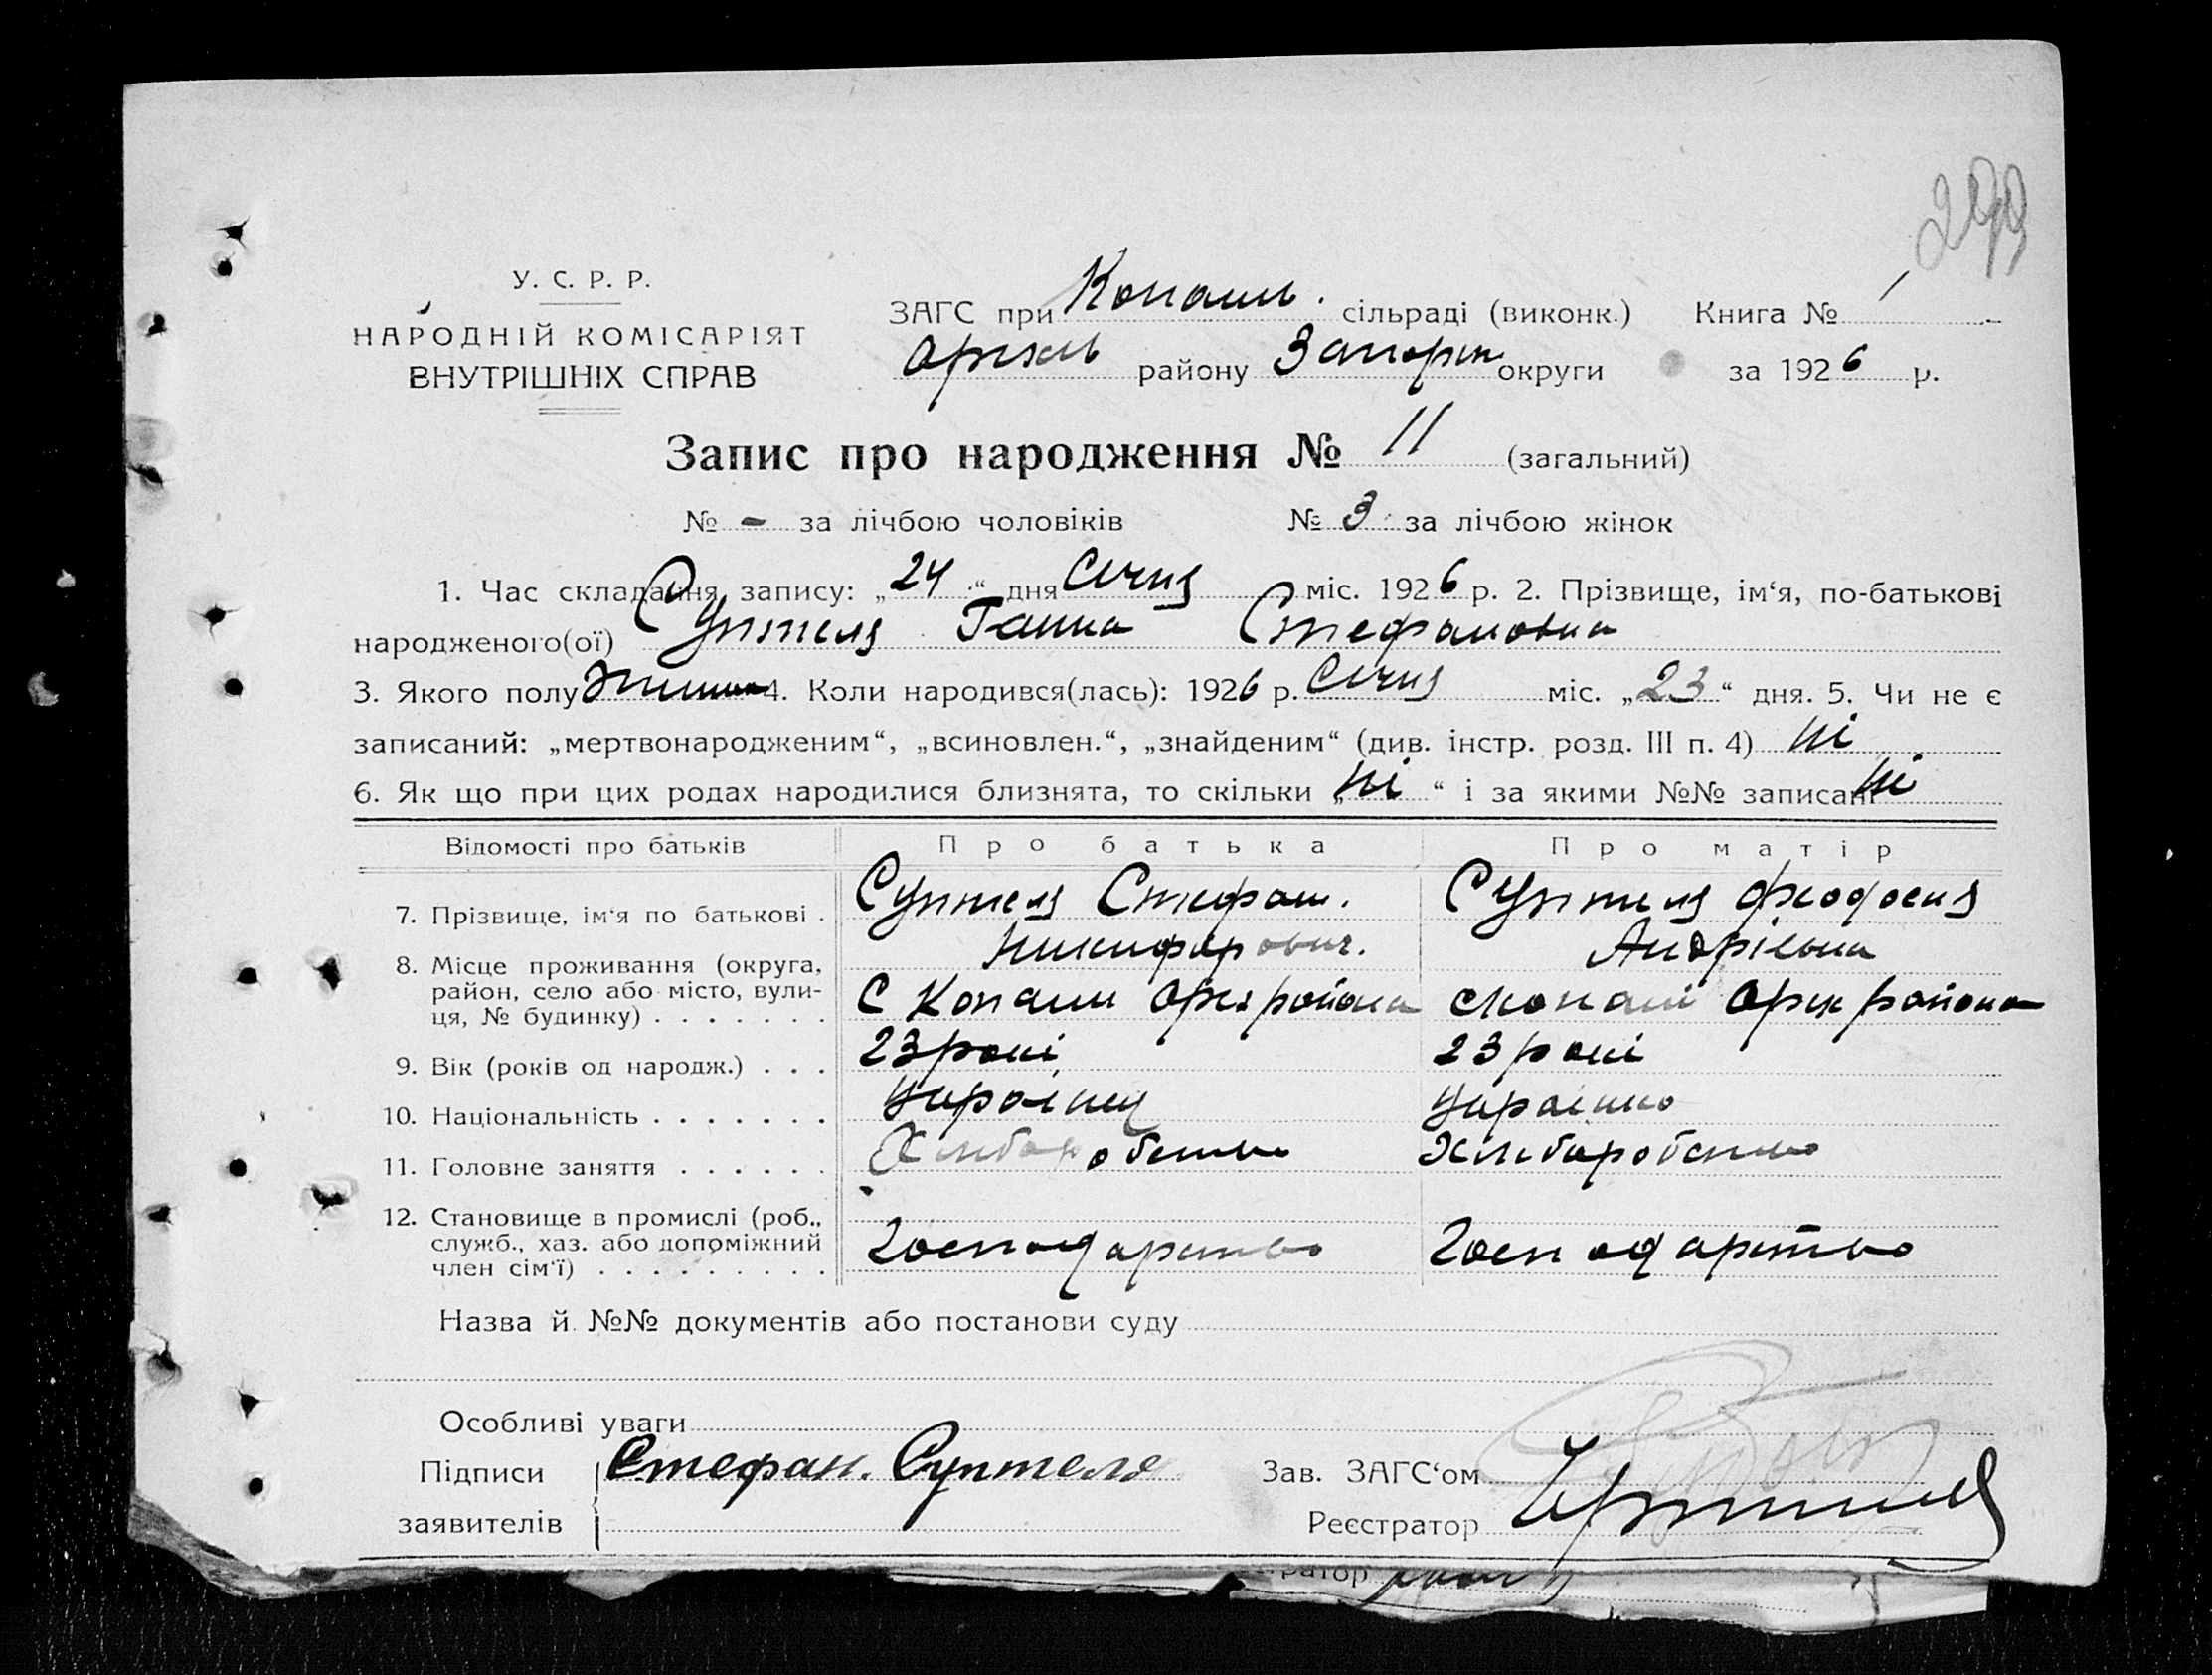 299
У. С. Р. Р.
НАРОДНІЙ КОМІСАРІЯТ
ВНУТРІШНІХ СПРАВ
ЗАГС при Копань. сільраді (виконк.) Книга № 1
Оріхів району Запоріж округи за 1926 р.
Запис про народження № 11 (загальний)
№ - за лічбою чоловіків № 3 за лічбою жінок
1. Час складання запису: „24“ дня Січня міс. 1926 р. 2. Прізвище, ім‘я, по-батькові
народженого(ої) Суптеля Ганна Стефановна
3. Якого полу 4. Коли народився(лась): 1926 р. Січня міс. „23“ дня. 5. Чи не є
записаний: „мертвонародженим“, „всиновлен.“, „знайденим“ (див. інстр. розд. III п. 4) ні
6. Як що при цих родах народилися близнята, то скільки „ні“ і за якими №№ записані ні
Відомості про батьків Про батька Про матір
7. Прізвище, ім‘я по батькові . Суптеля Стефан. Суптеля Феодосия
Никифорович. Андріевна
8. Місце проживання (округа,
район, село або місто, вули-
ця, № будинку) . . . . . . . С Копани Орех района с Копани Орех района
9. Вік (років од народж.) . . . 23 рокі 23 рокі
10. Національність . . . . . . . Украінец Украінка
11. Головне заняття . . . . . . Хлиборобство Хлиборобство
12. Становище в промислі (роб.,
служб., хаз. або допоміжний
член сім‘ї) . . . . . . . . . Господарство Господарство
Назва й №№ документів або постанови суду
Особливі уваги
Підписи Стефан. Суптеля Зав. ЗАГС‘ом
заявителів Реєстратор
ратор